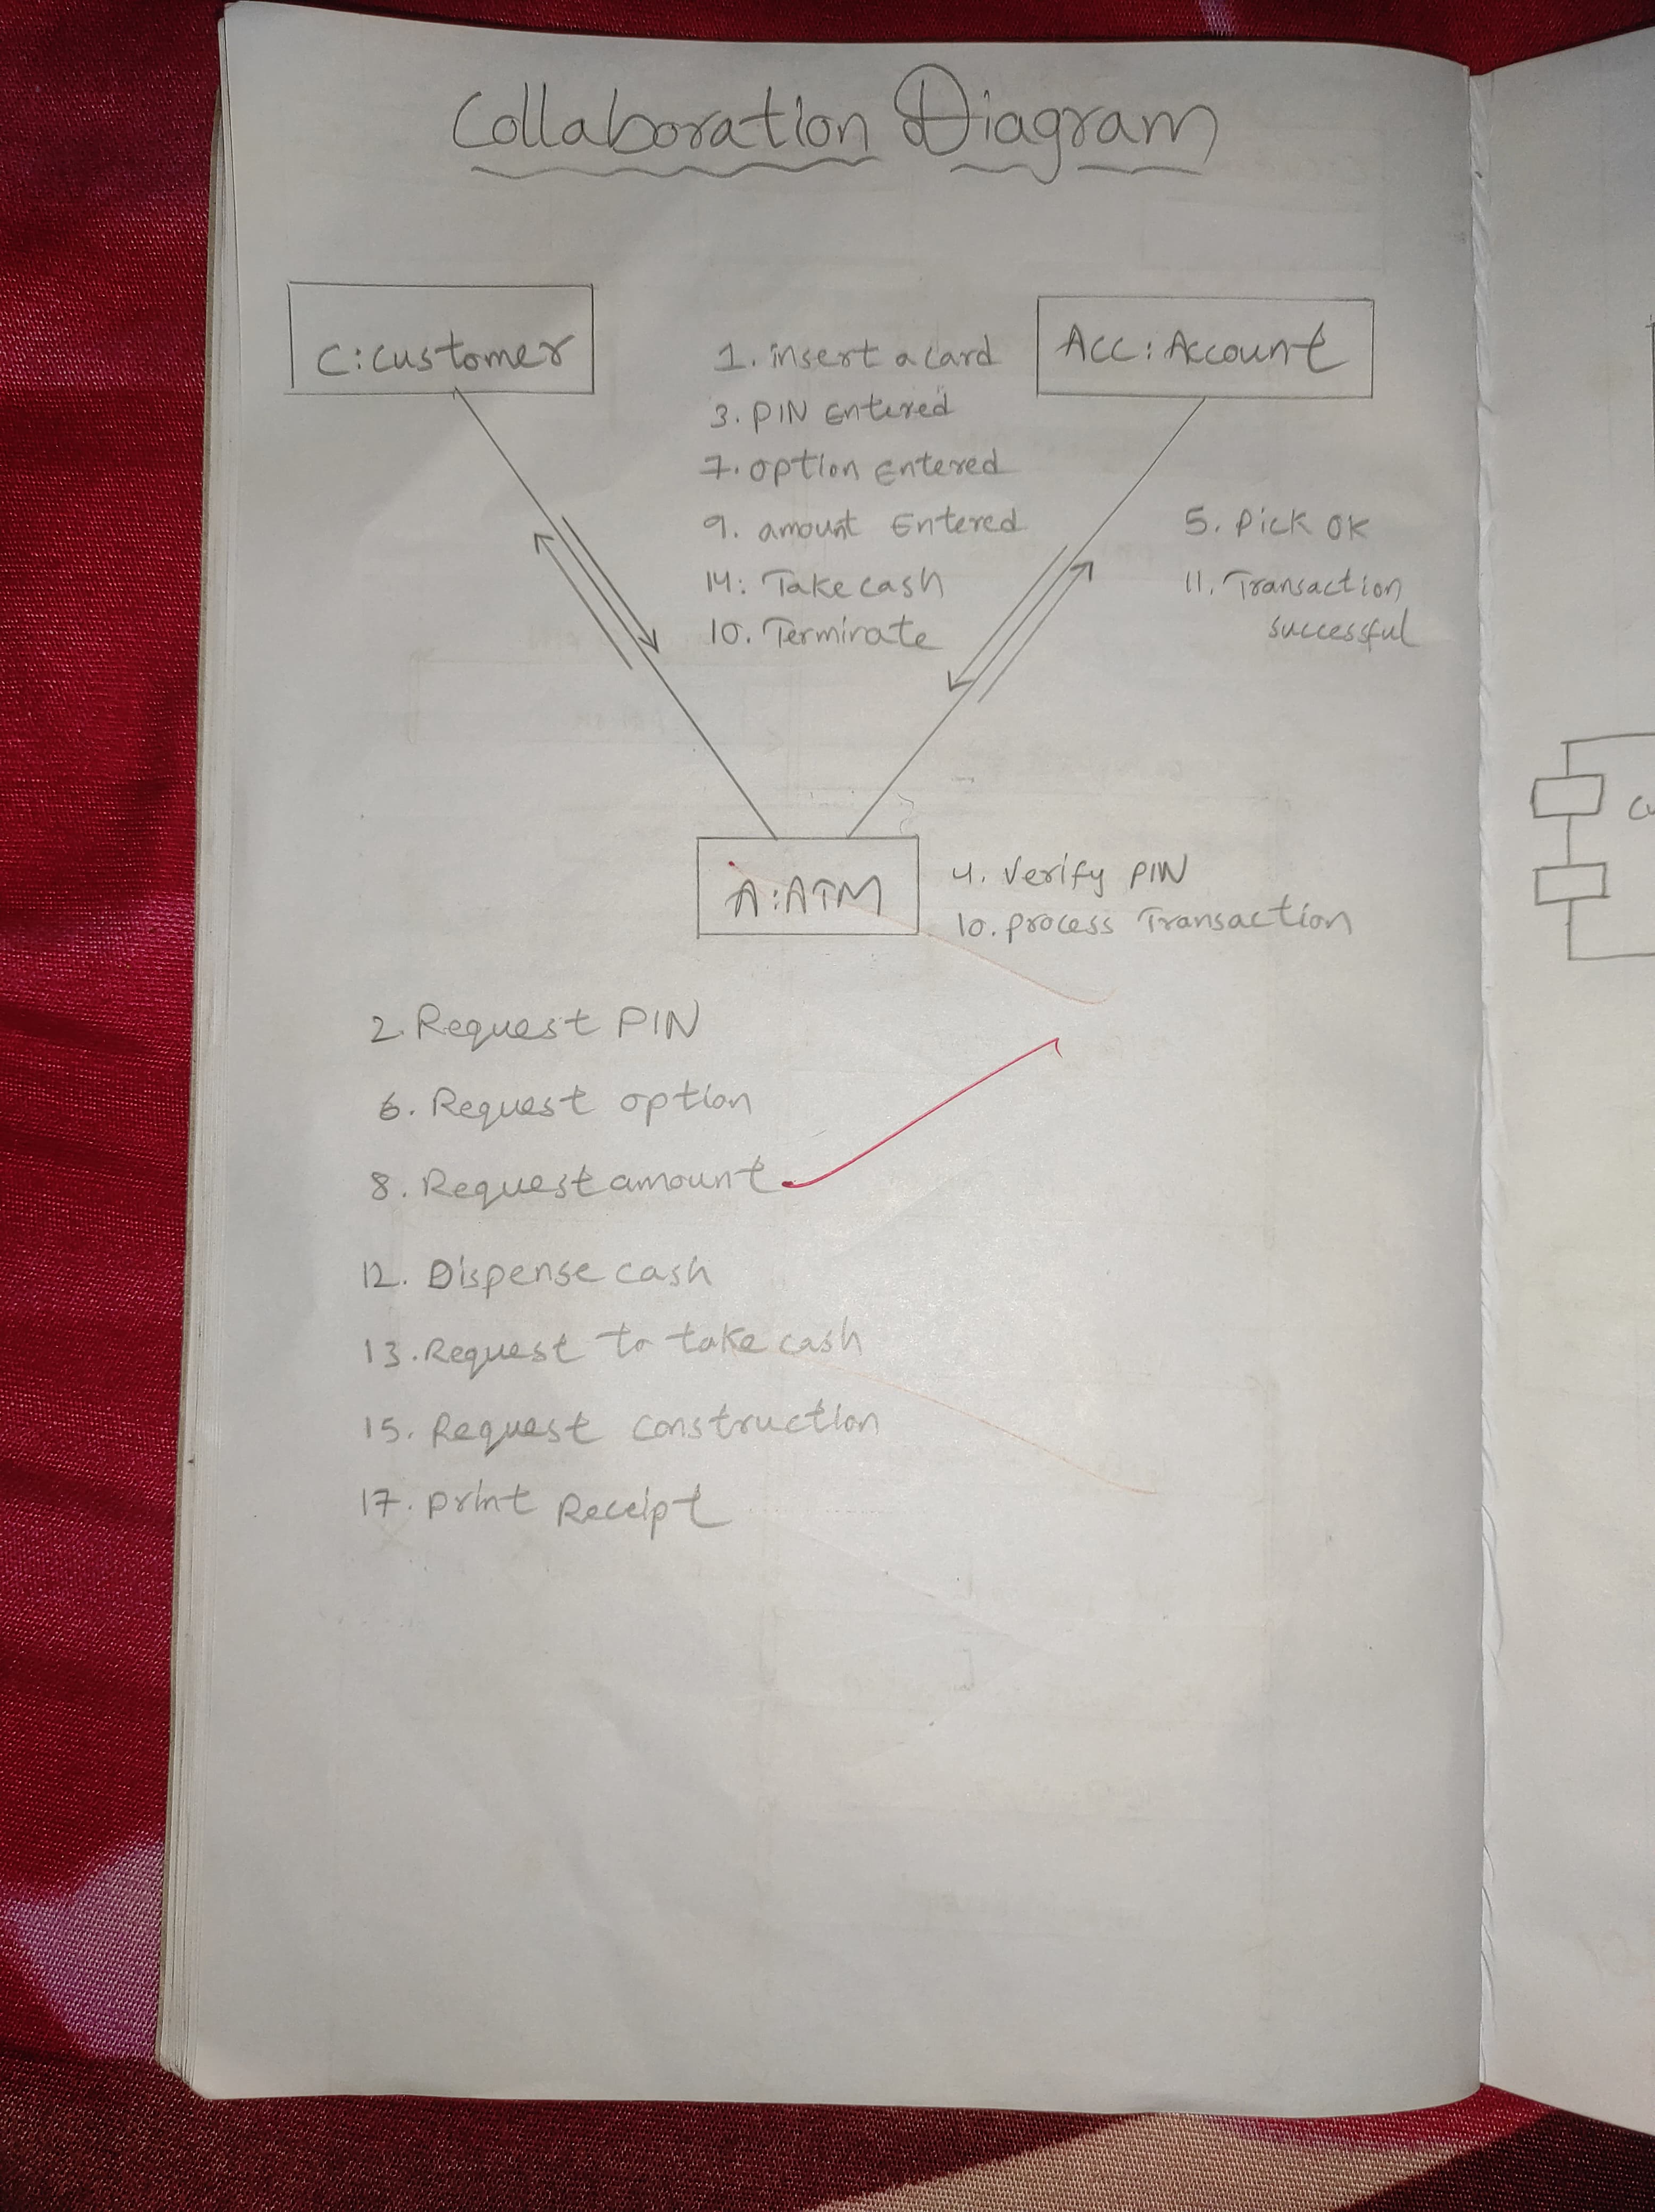 Collaboration Diagram
C:customer
Acc: Account
1. insert a card
3. PIN Entered
7. option Entered
9. amount Entered
14: Take cash
10. Terminate
5. Pick OK
11. Transaction
successful
A:ATM
4. Verify PIN
10. process Transaction
2. Request PIN
6. Request option
8. Request amount
12. Dispense cash
13. Request to take cash
15. Request construction
17. print Receipt